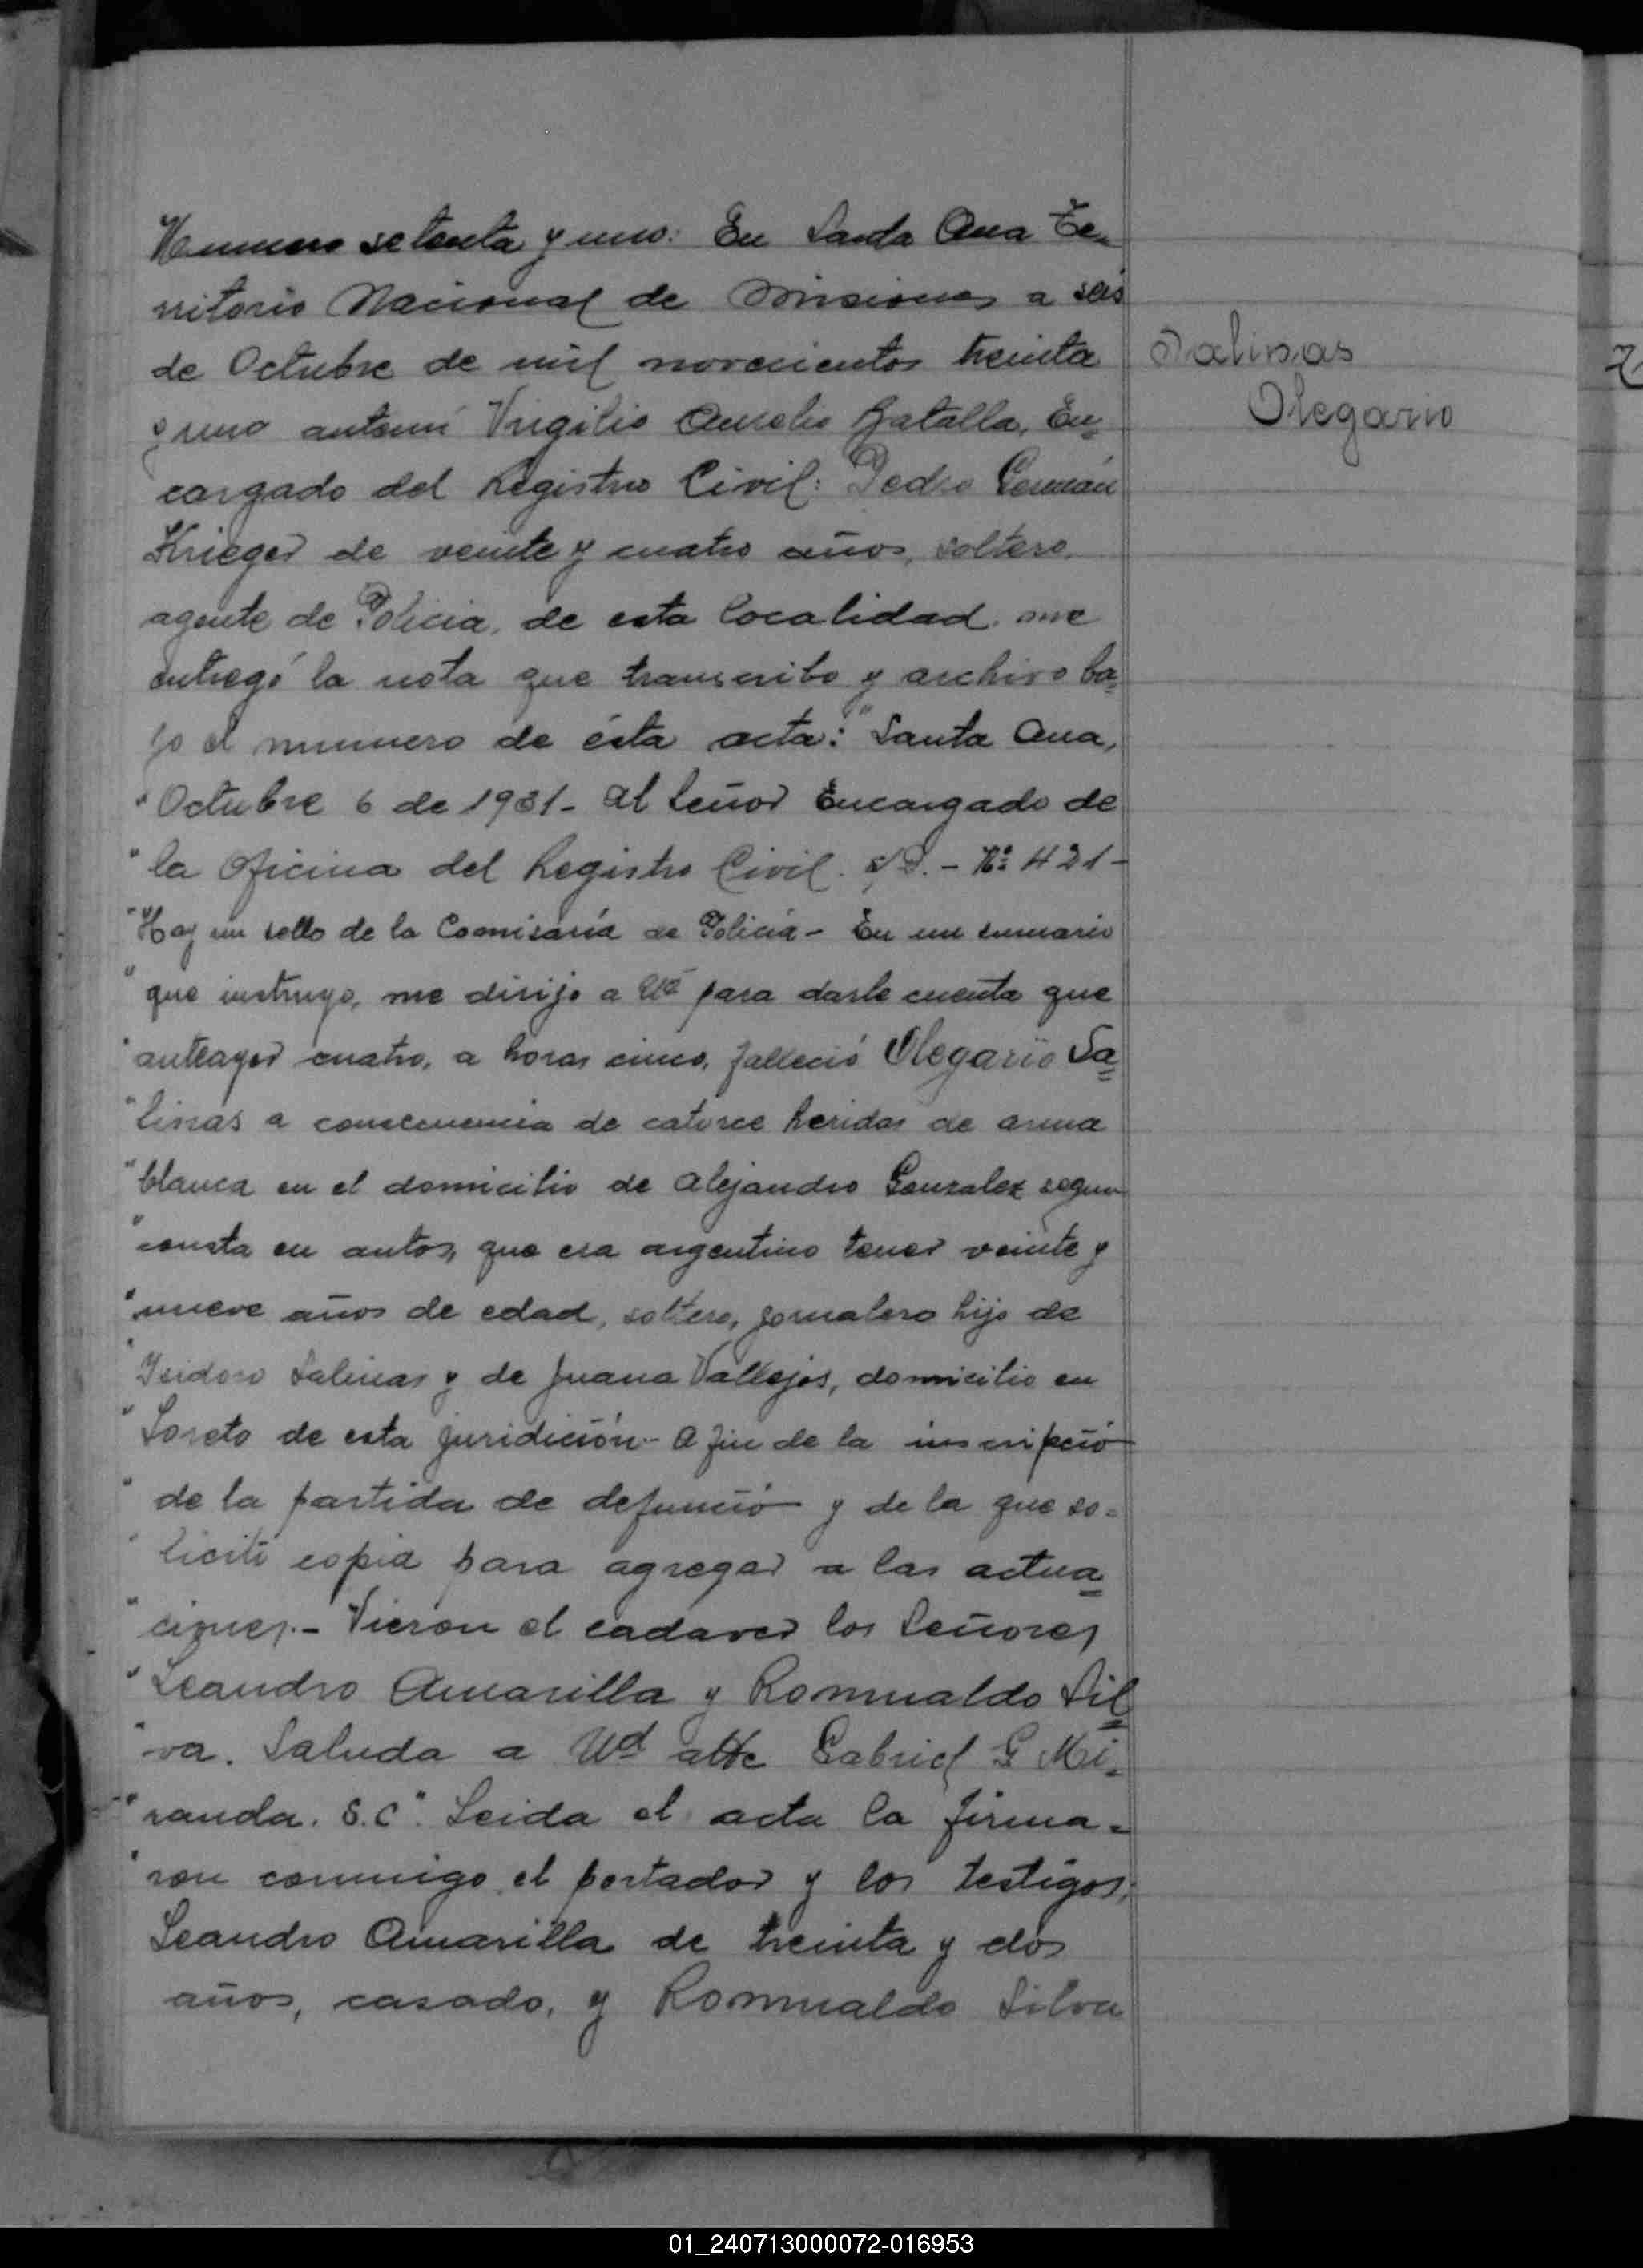 Numero setenta y uno: En Santa Ana Te-
rritorio Nacional de Misiones a seis
de Octubre de mil novecientos treinta
y uno antemí Virgilio Aurelio Batalla, En=
cargado del Registro Civil: Pedro Germán
Krieger de veinte y cuatro años, soltero,
agente de Policia, de esta localidad, me
entregó la nota que transcribo y archivo ba=
jo el numero de ésta acta: "Santa Ana,
"Octubre 6 de 1931- Al Señor Encargado de
"la Oficina del Registro Civil. S/D. - Nº 421-
"Hay un sello de la Comisaría de Policia - En un sumario
"que instruyo, me dirijo a Ud para darle cuenta que
"anteayer cuatro, a horas cinco, falleció Olegario Sa=
"linas a consecuencia de catorce heridas de arma
"blanca en el domicilio de Alejandro Gonzalez segun
"consta en autos, que era argentino tener veinte y
"nueve años de edad, soltero, jornalero hijo de
"Isidoro Salinas y de Juana Vallejos, domicilio en
"Loreto de esta juridición - A fin de la inscripció
"de la partida de defunció y de la que so=
"licite copia para agregar a las actua=
"ciones.- Vieron el cadaver los Señores
"Leandro Amarilla y Romualdo Sil=
"va. Saluda a Ud atte Gabriel G Mi-
"randa. S.C". Leida el acta la firma=
"ron conmigo el portador y los testigos,
Leandro Amarilla de treinta y dos
años, casado, y Romualdo Silva
Salinas
Olegario
01_240713000072-016953